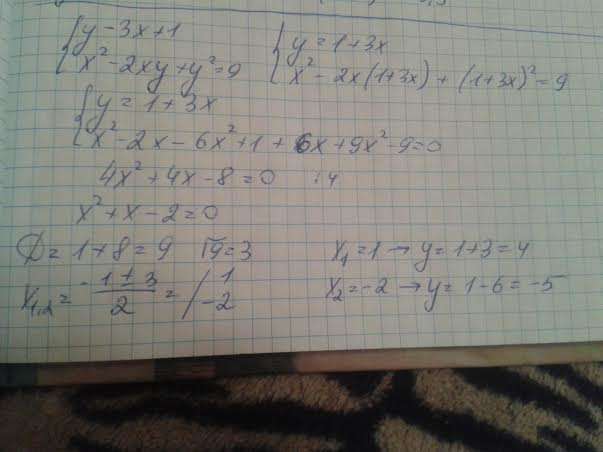 { y - 3x + 1 { y = 1 + 3x
x² - 2xy + y² = 9 x² - 2x(1+3x) + (1+3x)² = 9
{ y = 1 + 3x
x² - 2x - 6x² + 1 + 6x + 9x² - 9 = 0
4x² + 4x - 8 = 0 :4
x² + x - 2 = 0
D = 1 + 8 = 9 √9 = 3 x₁ = 1 → y = 1 + 3 = 4
x₁,₂ = -1 ± 3 / 2 = / 1 -2 x₂ = -2 → y = 1 - 6 = -5